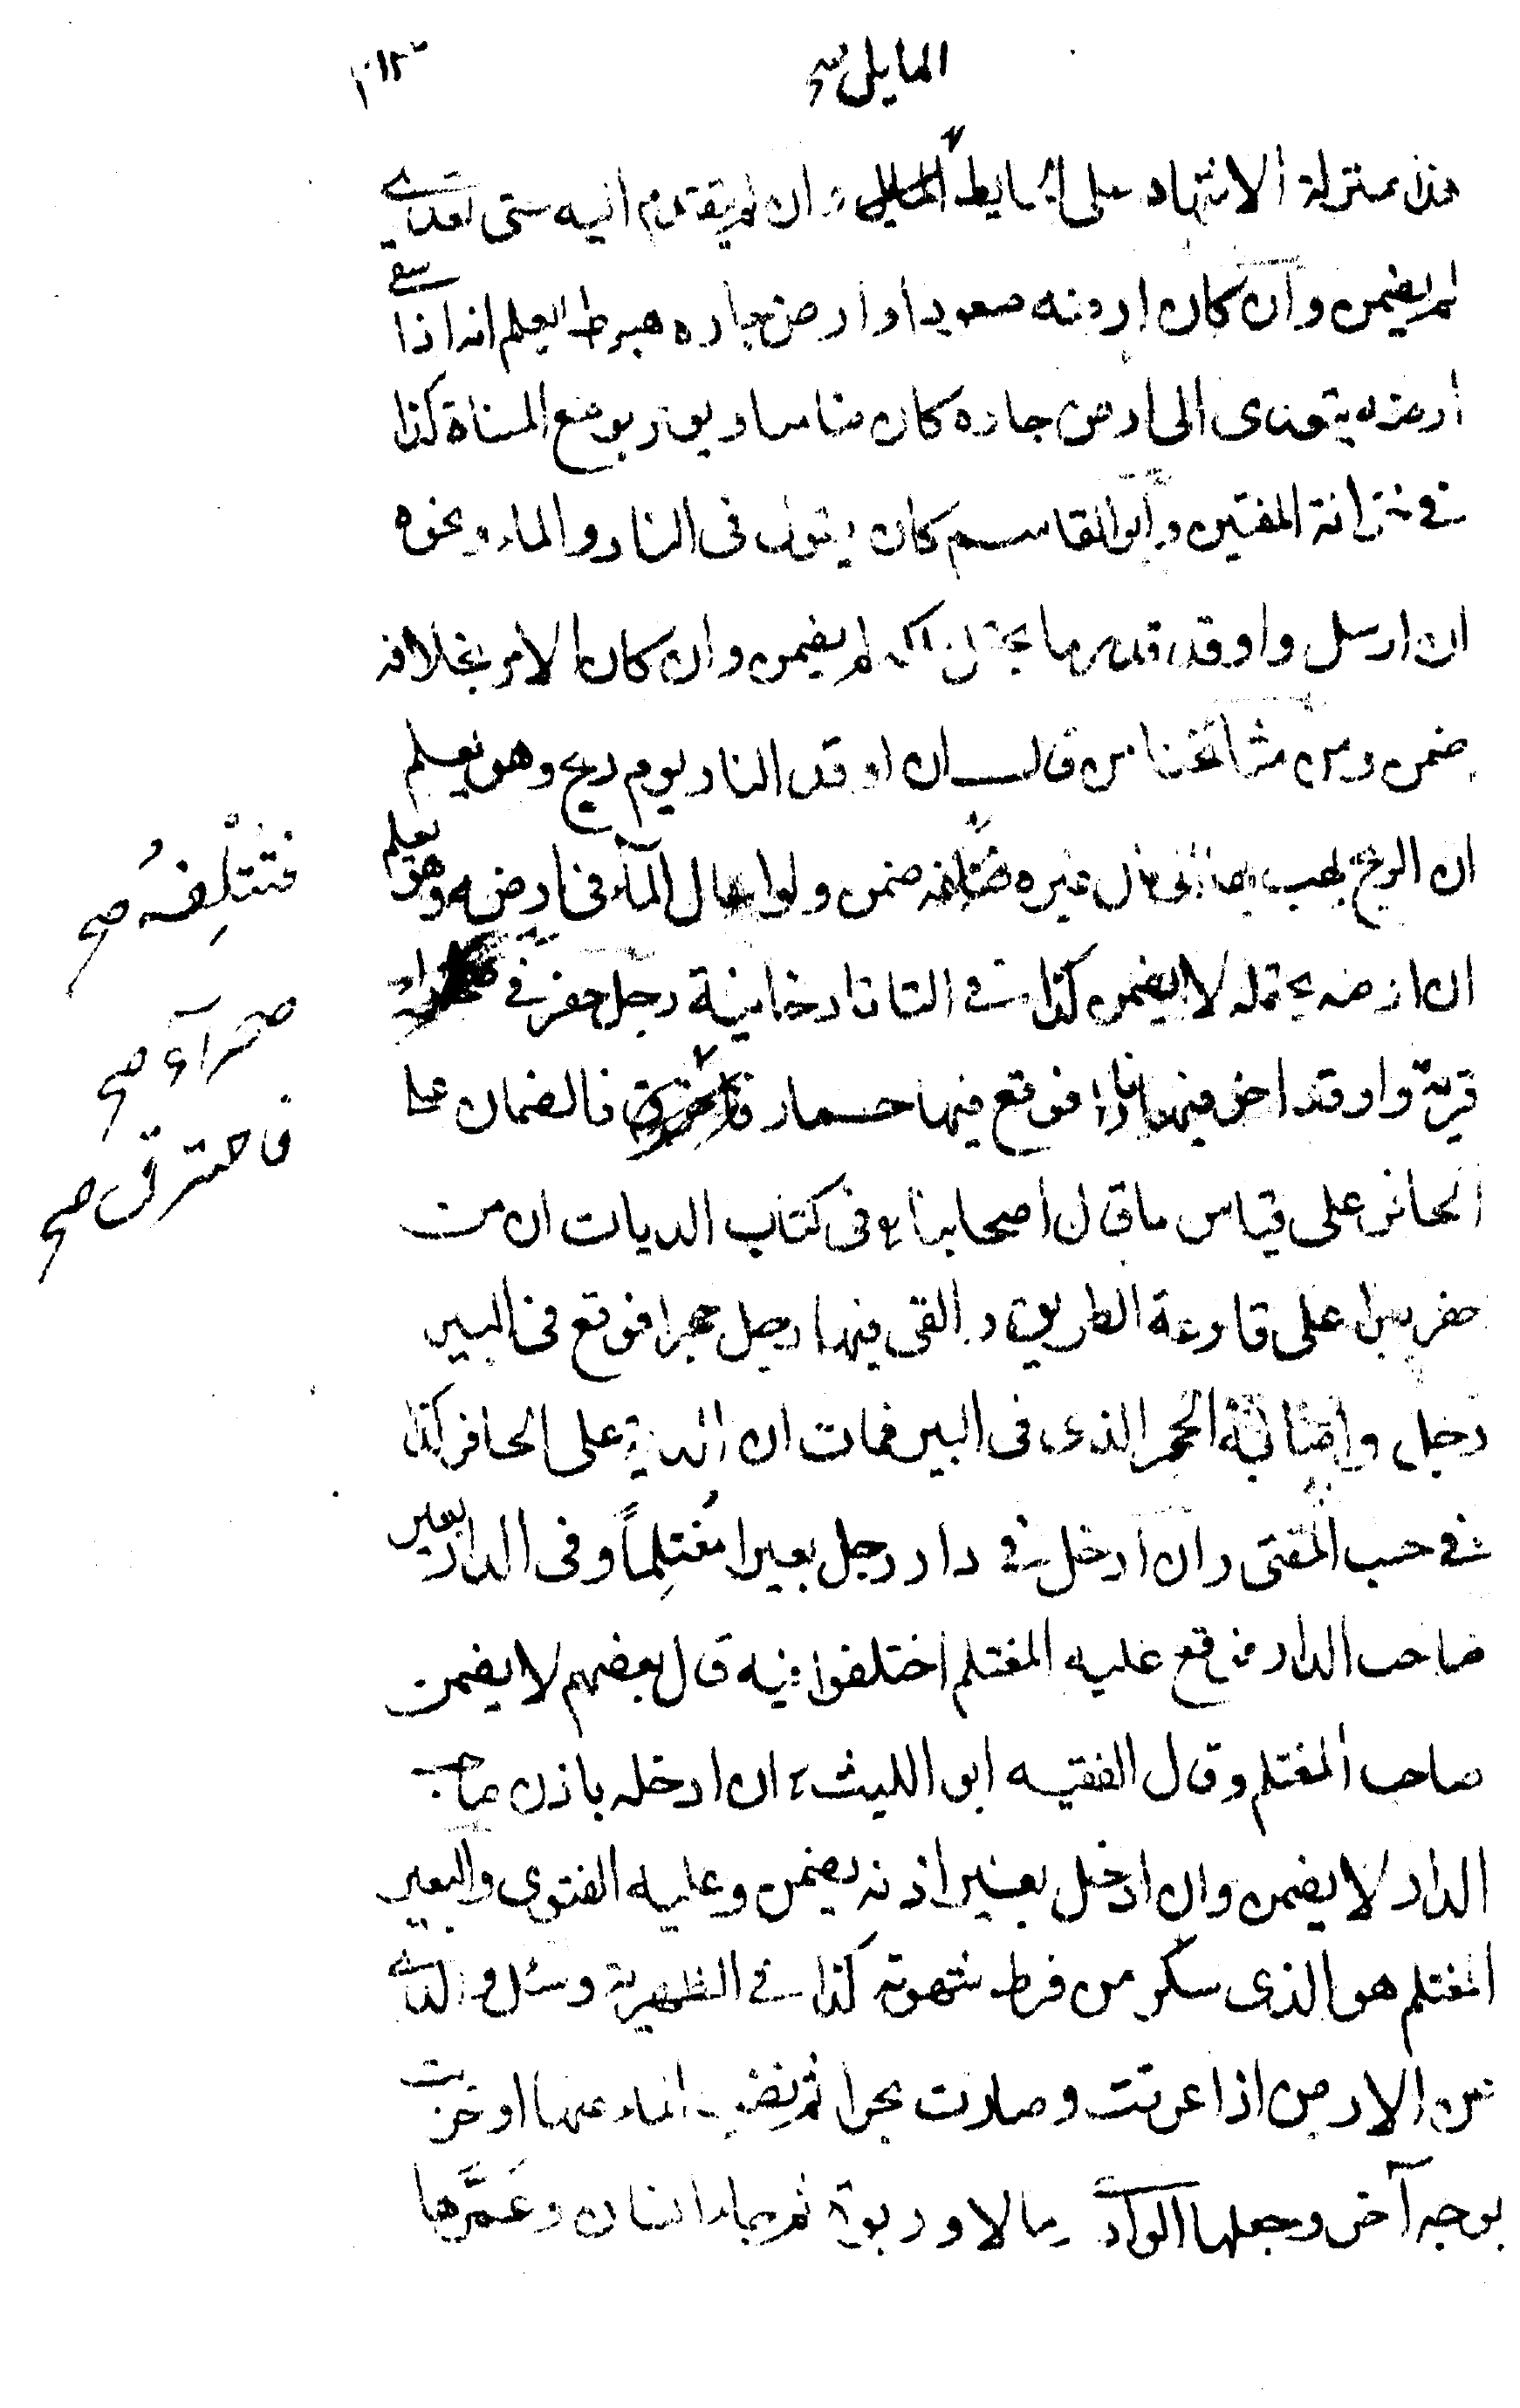 المايل صح
هذا بمنزلة الاشهاد على الحايط المايل وان لم يتقدم اليه حتى تعدى
لم يضمن وان كان ارضه صعودا وارض جاره هبوطا يعلم انه اذا سقى
ارضه يتعدى الى ارض جاره كان ضامنا ويومر بوضع المسناة كذا
فى خزانة المفتين وابو القاسم كان يقول فى النار والماء ونحوه
ان ارسل واوقد قدر ما يحتمل لم يضمن وان كان الامر بخلافه
ضمن ومن مشائخنا من قال ان اوقد النار يوم ريح وهو يعلم
ان الريح يهب بها الى مال غيره فتتلفه ضمن ولو اسال المآء فى ارضه وهو يعلم
ان ارضه يحتمله لا يضمن كذا فى التاتارخانية رجل حفر فى صحراء
قرية واوقد اخر فيها نارا فوقع فيها حمار فاحترق فالضمان على
الحافر على قياس ما قال اصحابنا فى كتاب الديات ان من
حفر بيرا على قارعة الطريق والقى فيها رجل حجرا فوقع فى البير
رجل واصابه الحجر الذى فى البير فمات ان الدية على الحافر كذا
فى حسب المفتى وان ادخل فى دار رجل بعيرا مُغتلِماً وفى الدار بعير
صاحب الدار فوقع عليه المغتلم اختلفوا فيه قال بعضهم لا يضمن
صاحب المغتلم وقال الفقيه ابو الليث ان ادخله باذن صاحب
الدار لا يضمن وان ادخل بغير اذنه يضمن وعليه الفتوى والبعير
المغتلم هو الذى سكر من فرط شهوته كذا فى الظهيرية وسئل والدى
عن الارض اذا غرقت وصارت بحرا ثم نضب الماء عنها او خربت
بوجه آخر وجعلها الوادى رمالا وربوة ثم جاء انسان وعَمَّرها
فتتْلِفهُ صح
صحرآء صح
فاحترق صح